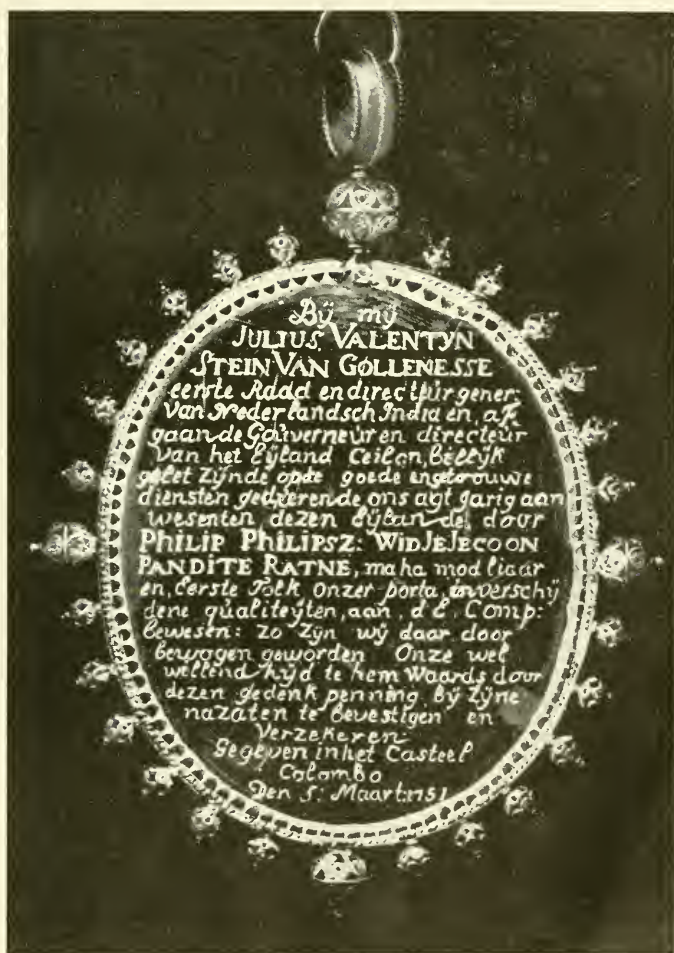 Bÿ mÿ
JULIUS VALENTYN
STEIN VAN GOLLENESSE
eerste Raad en directeur gener:
van Nederlandsch India en, af
gaande Gouverneur en directeur
van het Eÿland Ceilon, billÿk
gelet Zÿnde op de goede en getrouwe
diensten gedueren de ons agt garig aan
wesenten dezen Eÿlan de, door
PHILIP PHILIPSZ: WIDJEJECOON
PANDITE RATNE, maha modliaar
en, Eerste Tolk, onzer porta, in verschÿ
dene qualiteÿten, aan, d E, Comp:
bewesen: zo zÿn wÿ daar door
bewogen geworden Onze wel
wellend hÿd te hem Waards door
dezen gedenk penning bÿ Zÿne
nazaten te bevestigen en
Verzekeren
Gegeven in het Casteel
Colombo
Den 5: Maart: 1751